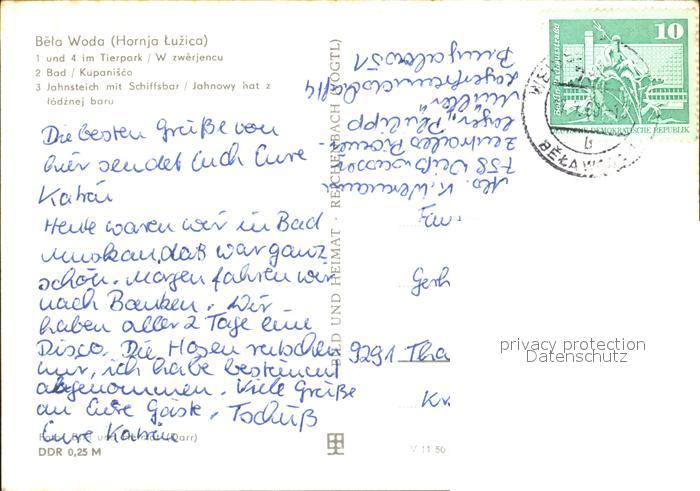 Běla Woda (Hornja Łužica)
1 und 4 im Tierpark / W zwěrjencu
2 Bad / Kupanišćo
3 Jahnsteich mit Schiffsbar / Jahnowy hat z
łódźnej baru
Die besten Grüße von
hier sendet Euch Eure
Katrin
Heute waren wir in Bad
Muskau, daß war ganz
schön. Morgen fahren wir
nach Bautzen. Wir
haben aller 2 Tage eine
Disco. Die Hosen rutschen
mir, ich habe bestimmt
abgenommen. Viele Grüße
an Eure Gäste, Tschüß
Eure Katrin
DDR 0,25 M
BILD UND HEIMAT · REICHENBACH (VOGTL)
V 11 50
Abs. K.
758 Weißwasser
Zentrales
Lager "Philipp
Müller"
Bungalow 51
10
DEMOKRATISCHE REPUBLIK
BĚŁA WODA
b
Fam
Gerh
9291 Tha
Kr
privacy protection
Datenschutz